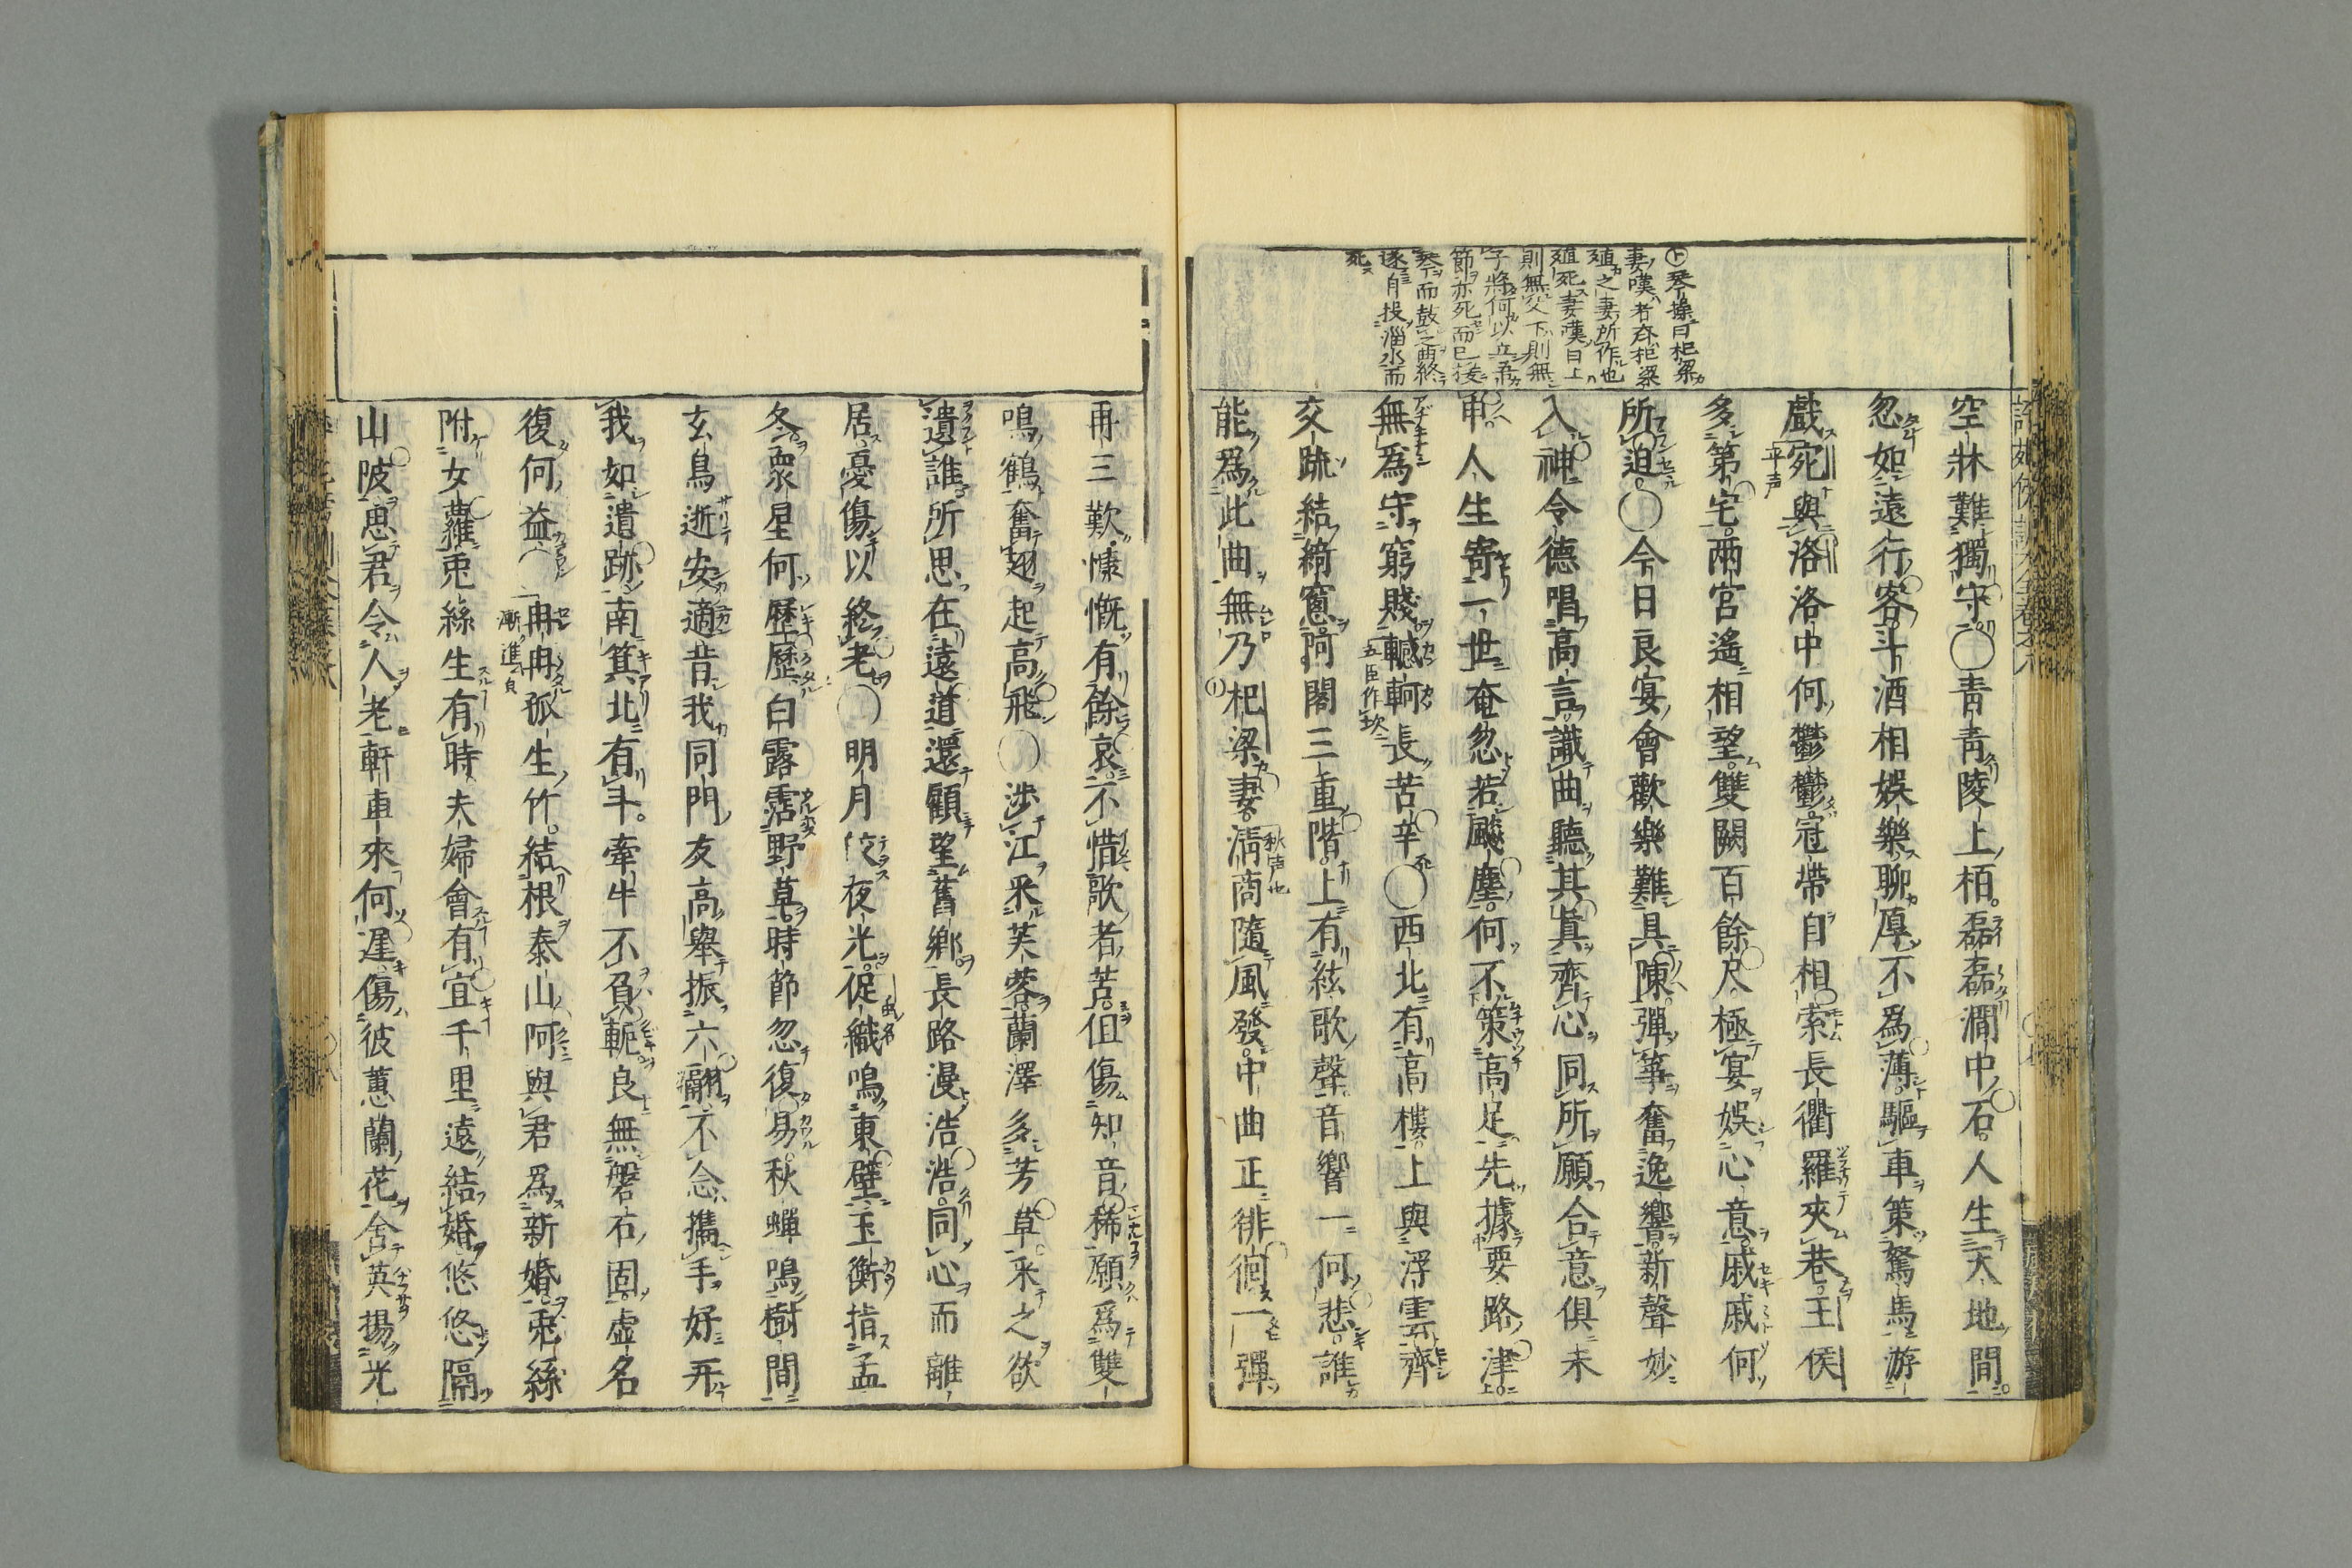 ㊦琴操曰杞梁
妻嘆者齊杞梁
殖之妻所作也
殖死妻嘆曰上
則無父下則無
子將何以立吾
節亦死而已援
琴而鼓之曲終
遂自投淄水而
死
空牀難獨守○青青陵上栢磊磊澗中石人生天地間
忽如遠行客斗酒相娯樂聊厚不爲薄驅車策駑馬游
戯宛與洛洛中何鬱鬱冠帶自相索長衢羅夾巷王侯
平声
多第宅兩宮遙相望雙闕百餘尺極宴娯心意戚戚何
所迫○今日良宴會歡樂難具陳彈箏奮逸響新聲妙
入神令德唱高言識曲聽其眞齊心同所願合意俱未
申人生寄一世奄忽若飈塵何不策高足先據要路津
無爲守窮賤轗軻長苦辛○西北有高樓上與浮雲齊
五臣作坎
交疏結綺窓阿閣三重階上有絃歌聲音響一何悲誰
能爲此曲無乃杞梁妻淸商隨風發中曲正徘徊一彈
秋声也
再三歎慷慨有餘哀不惜歌者苦但傷知音稀願爲雙
鳴鶴奮翅起高飛○渉江采芙蓉蘭澤多芳草采之欲
遺誰所思在遠道還顧望舊鄕長路漫浩浩同心而離
居憂傷以終老○明月皎夜光促織鳴東壁玉衡指孟
虫名
冬衆星何歷歷白露霑野草時節忽復易秋蟬鳴樹間
玄鳥逝安適昔我同門友高舉振六翮不念攜手好弃
我如遺跡南箕北有斗牽牛不負軛良無磐石固虚名
復何益○冉冉孤生竹結根泰山阿與君爲新婚兎絲
漸進皃
附女蘿兎絲生有時夫婦會有宜千里遠結婚悠悠隔
山陂思君令人老軒車來何遲傷彼蕙蘭花含英揚光